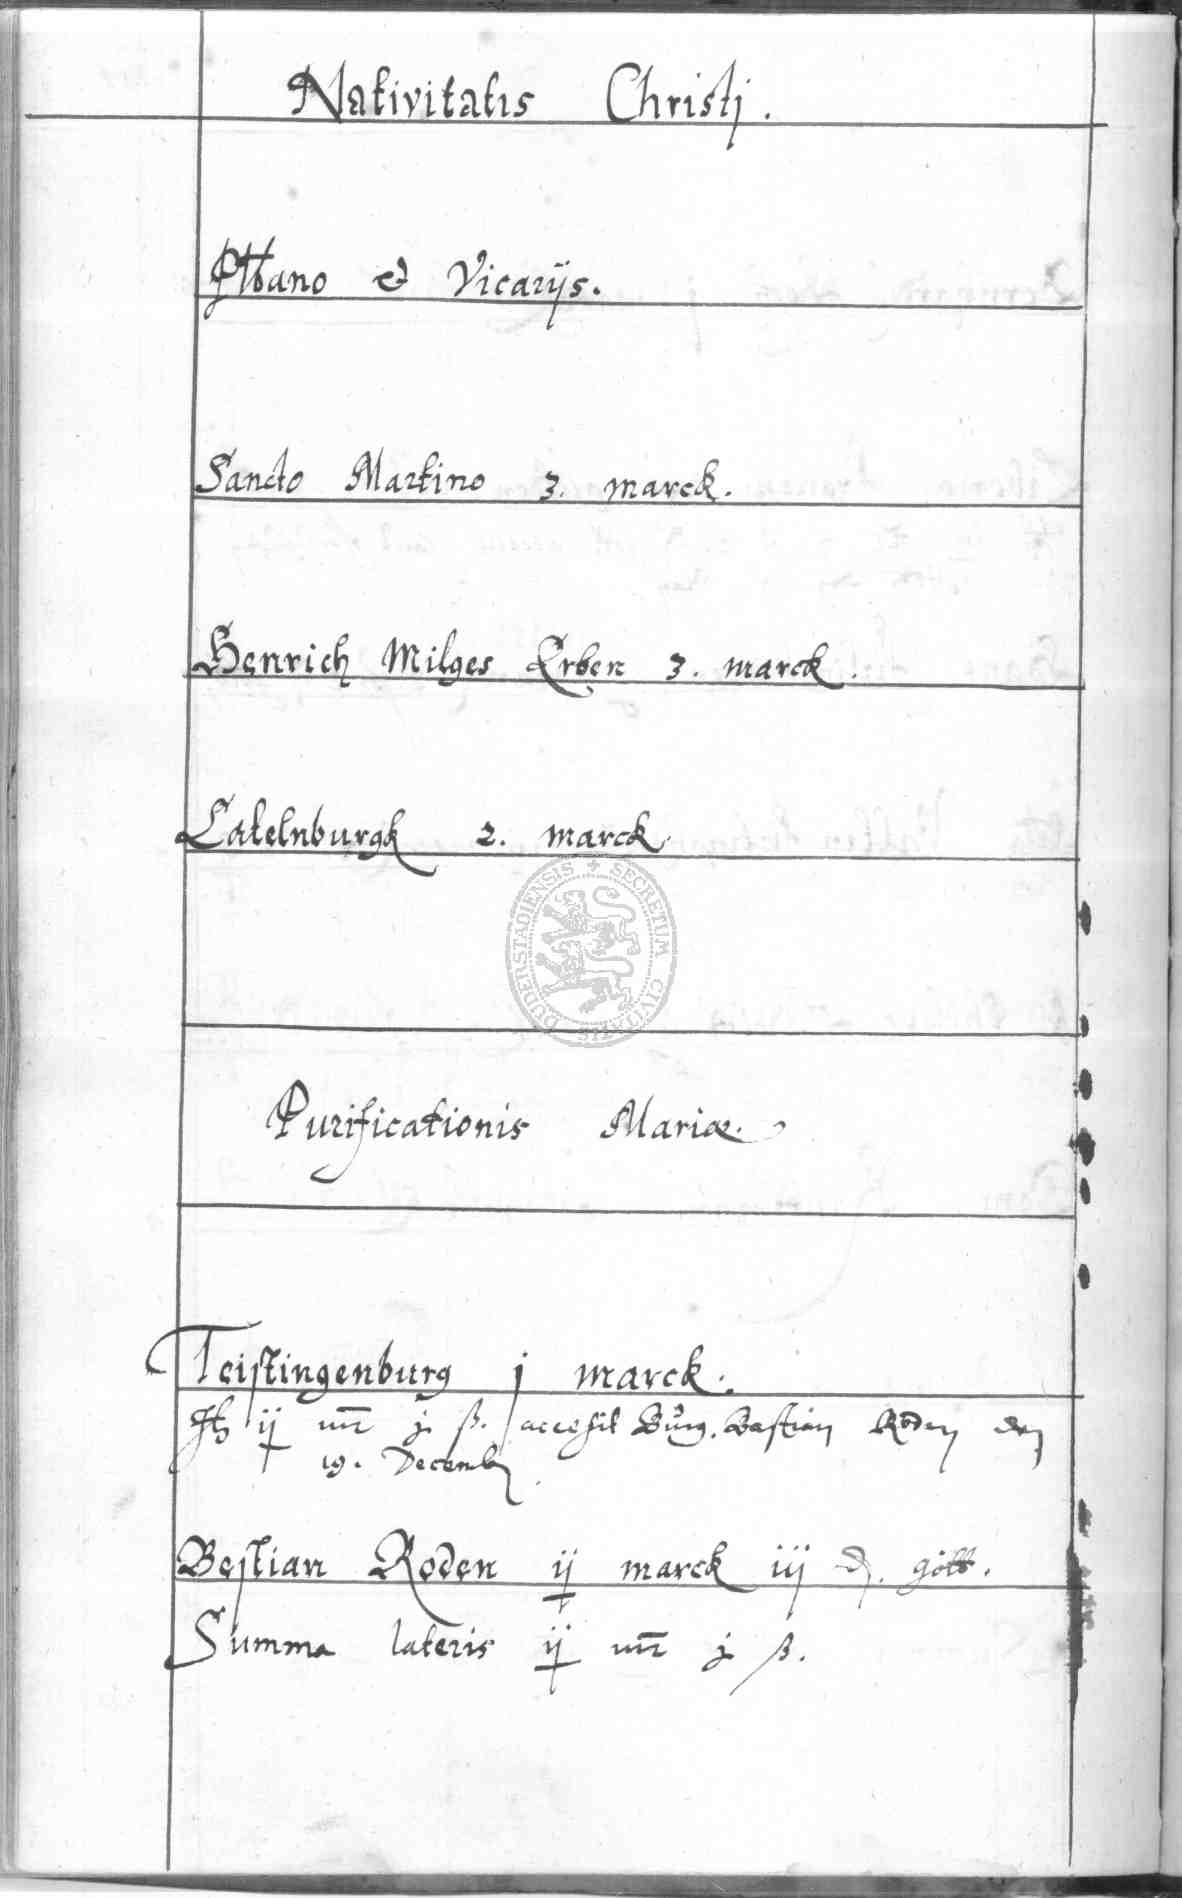 Nativitatis Christi.
Plbano et Vicarijs.
Sancto Martino 3. marck.
Henrich Milges Erben 3. marck.
Catelnburgk 2. marck.
DUDERSTADIENSIS + SECRETUM CIVITATIS
Purificationis Mariæ.
Teistingenburg j marck.
ij mr j ß. accepit Burg. Bastian Roden den
19. Decemb
Bestian Roden ij marck iij d. gött.
Summa lateris ij mr j ß.